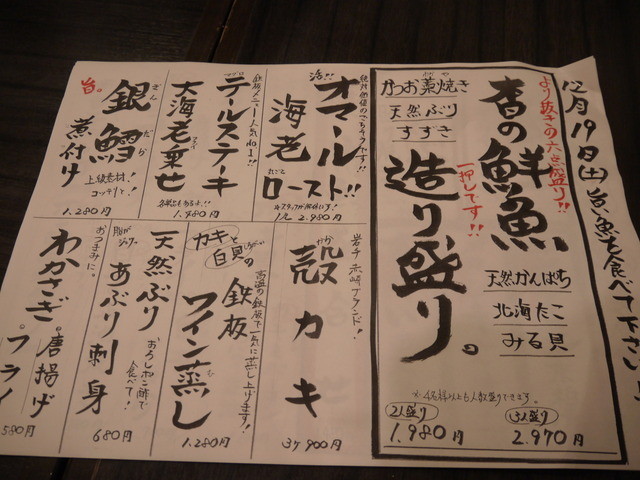 12月19日(土)旨い魚を食べて下さい!
より抜きの六点盛り!!
杏の鮮魚
造り盛り。
一押しです!!
かつお藁焼き
天然ぶり
すずき
天然かんぱち
北海たこ
みる貝
※4名様以上も人数盛りできます。
2人盛り
1.980円
3人盛り
2.970円
活!!
オマール
海老
ロースト!!
1尾 2.980円
鉄板メニュー人気No.1!!
マグロ
テールステーキ
大海老乗せ
1.480円
旨。
銀鱈
ぎん だら
煮付け
上級素材!
コッテリで!
1.280円
岩手 赤崎ブランド!
殻カキ
から
3ケ 900円
カキと
白貝の
鉄板
ワイン蒸し
高温の鉄板で一気に蒸し上げます!
1.280円
脂がジュワー
天然ぶり
あぶり刺身
おろしポン酢で
食べて!
680円
おつまみに。
わかさぎ
・唐揚げ
・フライ
580円